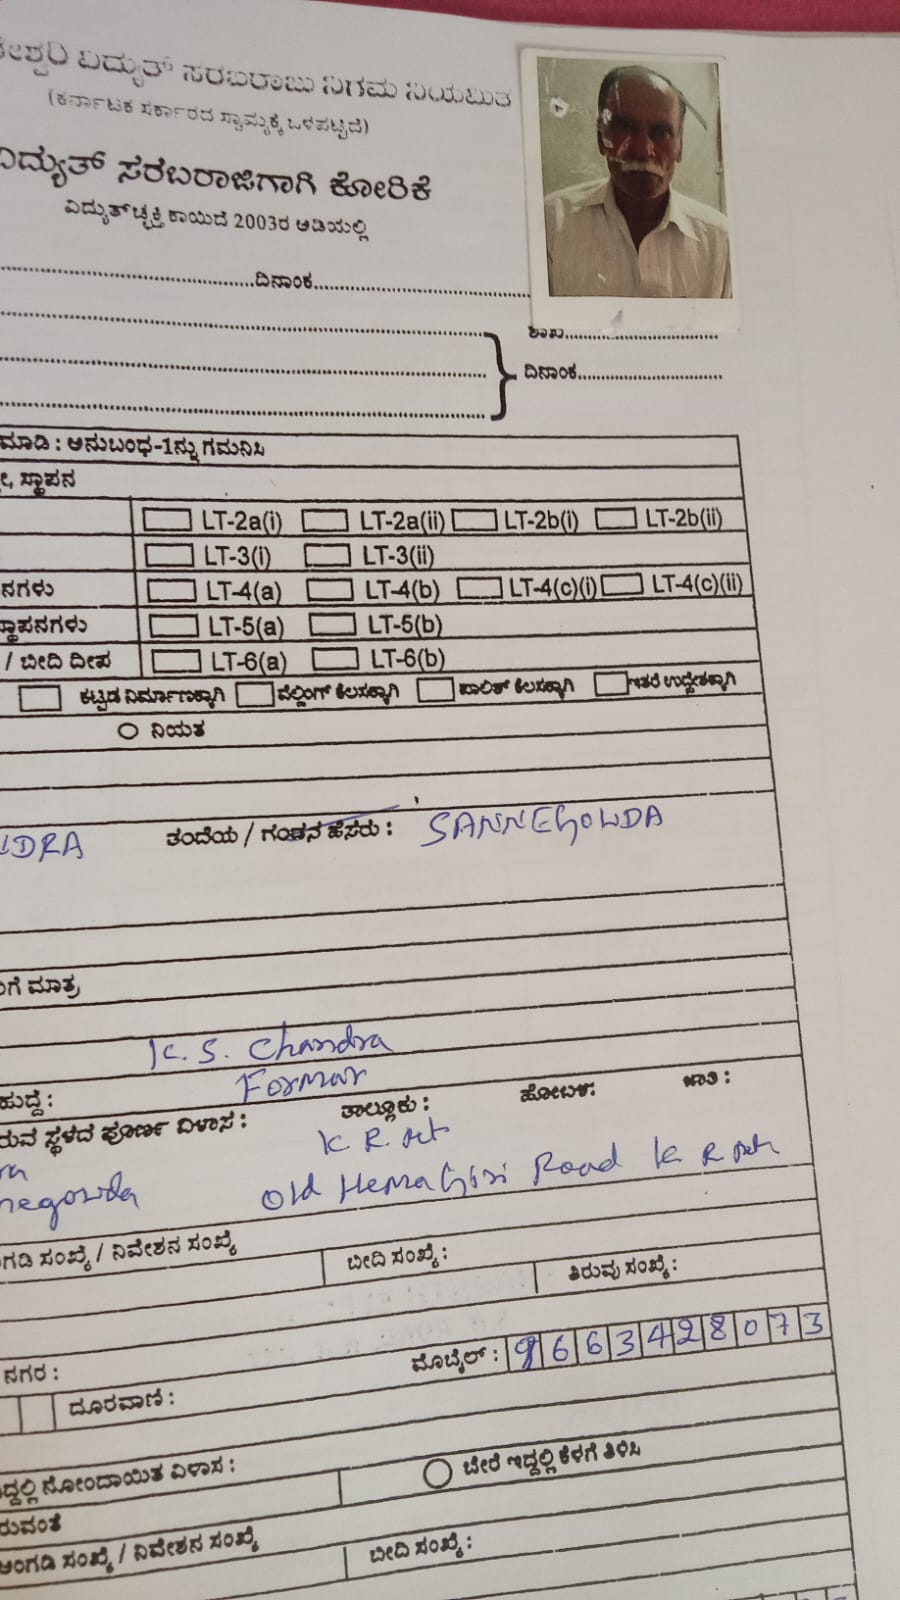 ವಿದ್ಯುತ್ ಸರಬರಾಜು ನಿಗಮ ನಿಯಮಿತ
(ಕರ್ನಾಟಕ ಸರ್ಕಾರದ ಸ್ವಾಮ್ಯಕ್ಕೆ ಒಳಪಟ್ಟಿದೆ)
ವಿದ್ಯುತ್ ಸರಬರಾಜಿಗಾಗಿ ಕೋರಿಕೆ
ವಿದ್ಯುತ್‌ಚ್ಛಕ್ತಿ ಕಾಯಿದೆ 2003ರ ಅಡಿಯಲ್ಲಿ
ದಿನಾಂಕ
ಶಾಖೆ
ದಿನಾಂಕ
ಮಾಡಿ : ಅನುಬಂಧ-1ನ್ನು ಗಮನಿಸಿ
ಸ್ಥಾಪನ
LT-2a(i) LT-2a(ii) LT-2b(i) LT-2b(ii)
LT-3(i) LT-3(ii)
LT-4(a) LT-4(b) LT-4(c)(i) LT-4(c)(ii)
LT-5(a) LT-5(b)
/ ಬೀದಿ ದೀಪ LT-6(a) LT-6(b)
ಕಟ್ಟಡ ನಿರ್ಮಾಣಕ್ಕಾಗಿ ವೆಲ್ಡಿಂಗ್ ಕೆಲಸಕ್ಕಾಗಿ ಪಾಲಿಶ್ ಕೆಲಸಕ್ಕಾಗಿ ಇತರೆ ಉದ್ದೇಶಕ್ಕಾಗಿ
ನಿಯತ
ತಂದೆಯ / ಗಂಡನ ಹೆಸರು : SANNEGOWDA
ಮಾತ್ರ
K. S. Chandra
ಹುದ್ದೆ : Formar
ಸ್ಥಳದ ಪೂರ್ಣ ವಿಳಾಸ : ತಾಲ್ಲೂಕು : ಹೋಬಳಿ: ಜಾತಿ :
K R Pet
Old HemaGiri Road K R Pet
ಸಂಖ್ಯೆ / ನಿವೇಶನ ಸಂಖ್ಯೆ
ಬೀದಿ ಸಂಖ್ಯೆ :
ತಿರುವು ಸಂಖ್ಯೆ :
ನಗರ :
ಮೊಬೈಲ್ : 9663428073
ದೂರವಾಣಿ :
ನೋಂದಾಯಿತ ವಿಳಾಸ :
ಬೇರೆ ಇದ್ದಲ್ಲಿ ಕೆಳಗೆ ತಿಳಿಸಿ
ಅಂಗಡಿ ಸಂಖ್ಯೆ / ನಿವೇಶನ ಸಂಖ್ಯೆ
ಬೀದಿ ಸಂಖ್ಯೆ :